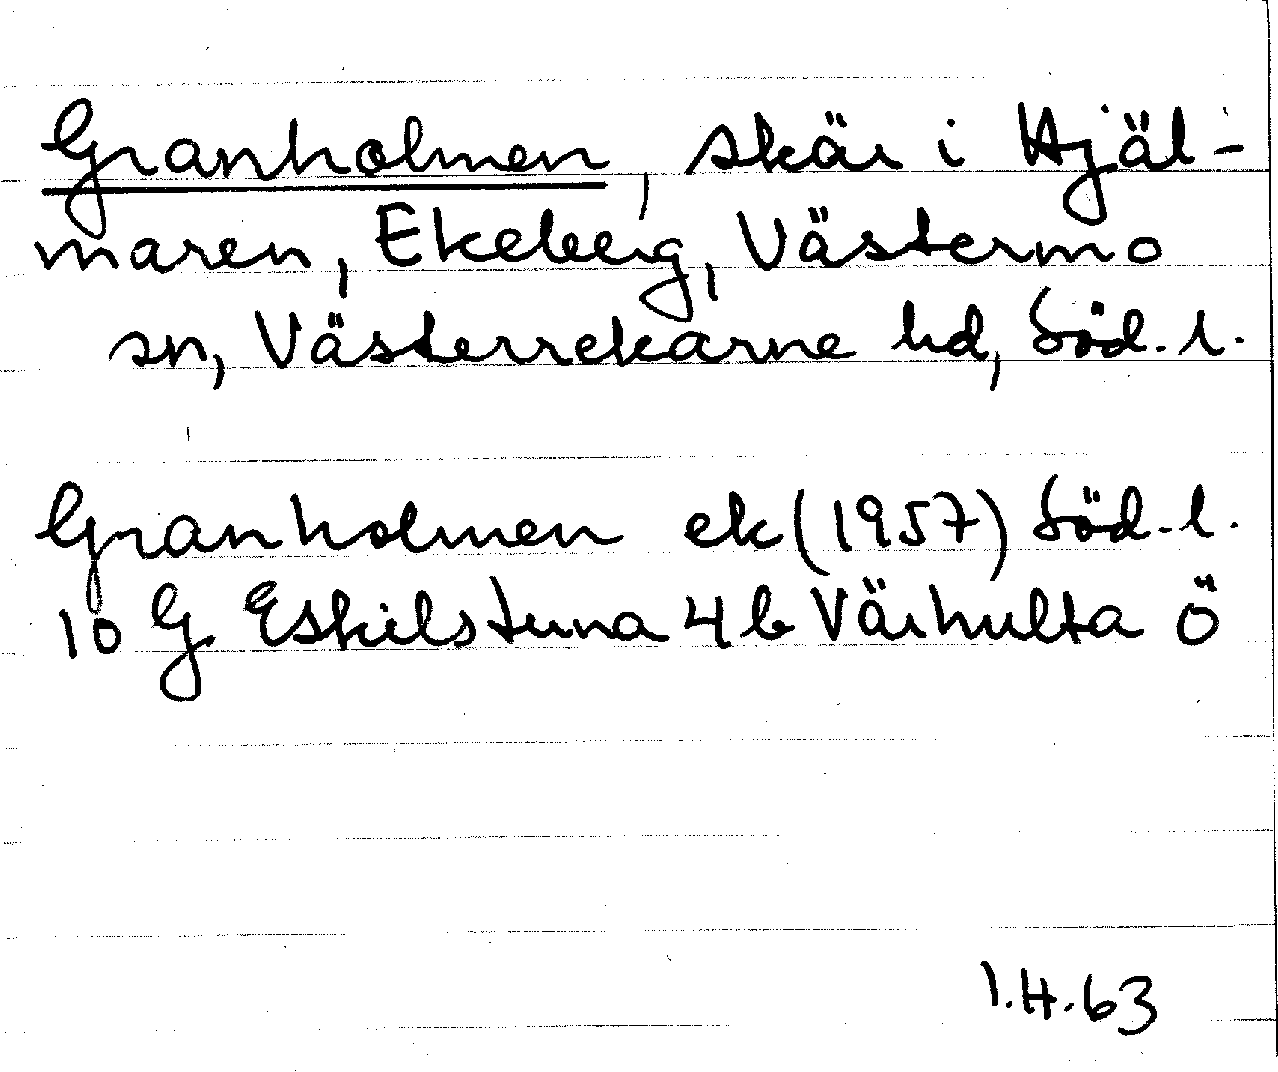 Granholmen, skär i Hjäl-
maren, Ekeberg, Västermo
sn, Västerrekarne hd, Söd. l.
Granholmen ek (1957) Söd. l.
10 G Eskilstuna 4 b Värhulta Ö
I.H.63